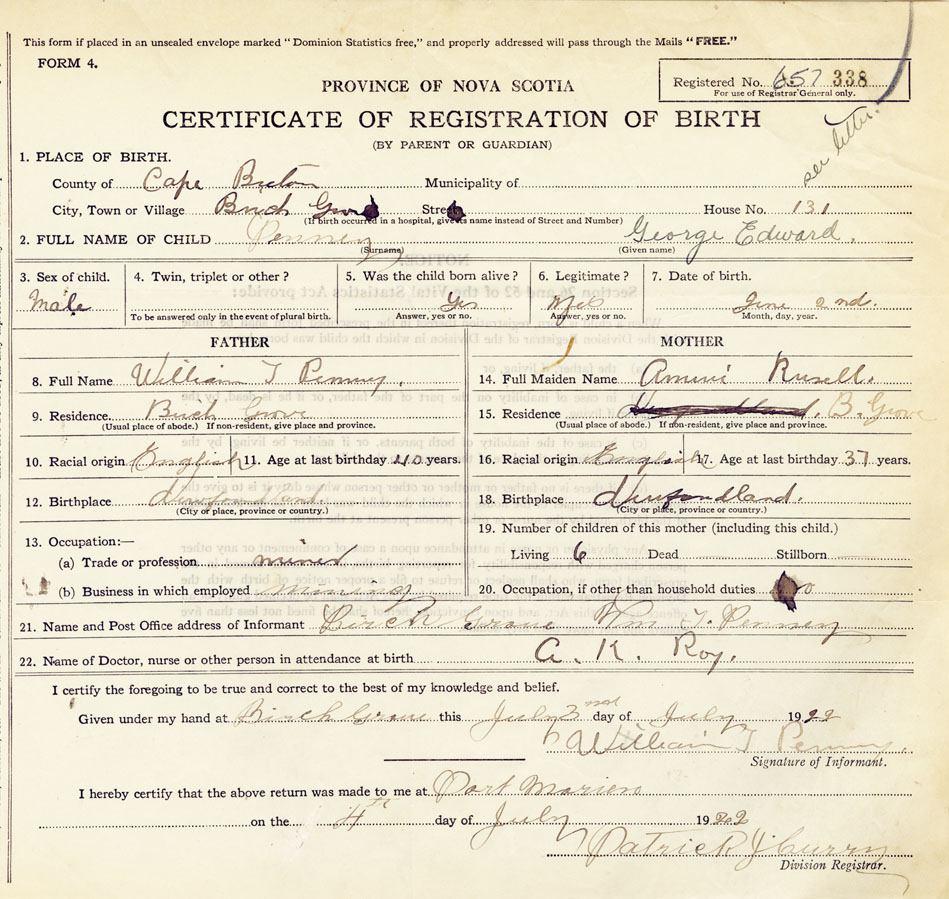 This form if placed in an unsealed envelope marked "Dominion Statistics free," and properly addressed will pass through the Mails "FREE."
FORM 4.
Registered No. 657 338
For use of Registrar General only.
PROVINCE OF NOVA SCOTIA
CERTIFICATE OF REGISTRATION OF BIRTH
(BY PARENT OR GUARDIAN)
see letter.
1. PLACE OF BIRTH.
County of Cape Breton Municipality of
City, Town or Village Birch Grove Street House No. 131
(If birth occurred in a hospital, give its name instead of Street and Number)
2. FULL NAME OF CHILD Penney George Edward.
(Surname) (Given name)
3. Sex of child. 4. Twin, triplet or other? 5. Was the child born alive? 6. Legitimate? 7. Date of birth.
Male Yes Yes June 2nd.
To be answered only in the event of plural birth. Answer, yes or no. Answer, yes or no. Month, day, year.
FATHER MOTHER
8. Full Name William T Penney. 14. Full Maiden Name Russell.
9. Residence. Birch Grove 15. Residence Newfoundland. B. Grove
(Usual place of abode.) If non-resident, give place and province. (Usual place of abode.) If non-resident, give place and province.
10. Racial origin English 11. Age at last birthday 40 years. 16. Racial origin English 17. Age at last birthday 37 years.
12. Birthplace Newfoundland. 18. Birthplace Newfoundland.
(City or place, province or country.) (City or place, province or country.)
13. Occupation:— 19. Number of children of this mother (including this child.)
(a) Trade or profession miner Living 6 Dead Stillborn
(b) Business in which employed mining 20. Occupation, if other than household duties
21. Name and Post Office address of Informant Birch Grove Wm T. Penney
22. Name of Doctor, nurse or other person in attendance at birth A. K. Roy.
I certify the foregoing to be true and correct to the best of my knowledge and belief.
Given under my hand at Birch Grove this July 2nd day of July 1922
William T Penney.
Signature of Informant.
I hereby certify that the above return was made to me at Port Morien
on the 4th day of July 1922
Patrick J Curry
Division Registrar.